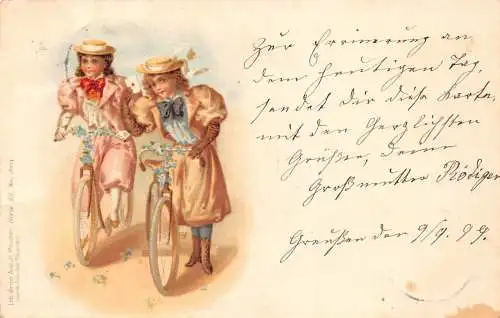 Zur Errinerung an
dem heutigen Tag,
sendet Dir diese Karte,
mit den Herzlichsten
Grüßen, deine
Großmutter Rödiger
Greußen den 9/9. 99.